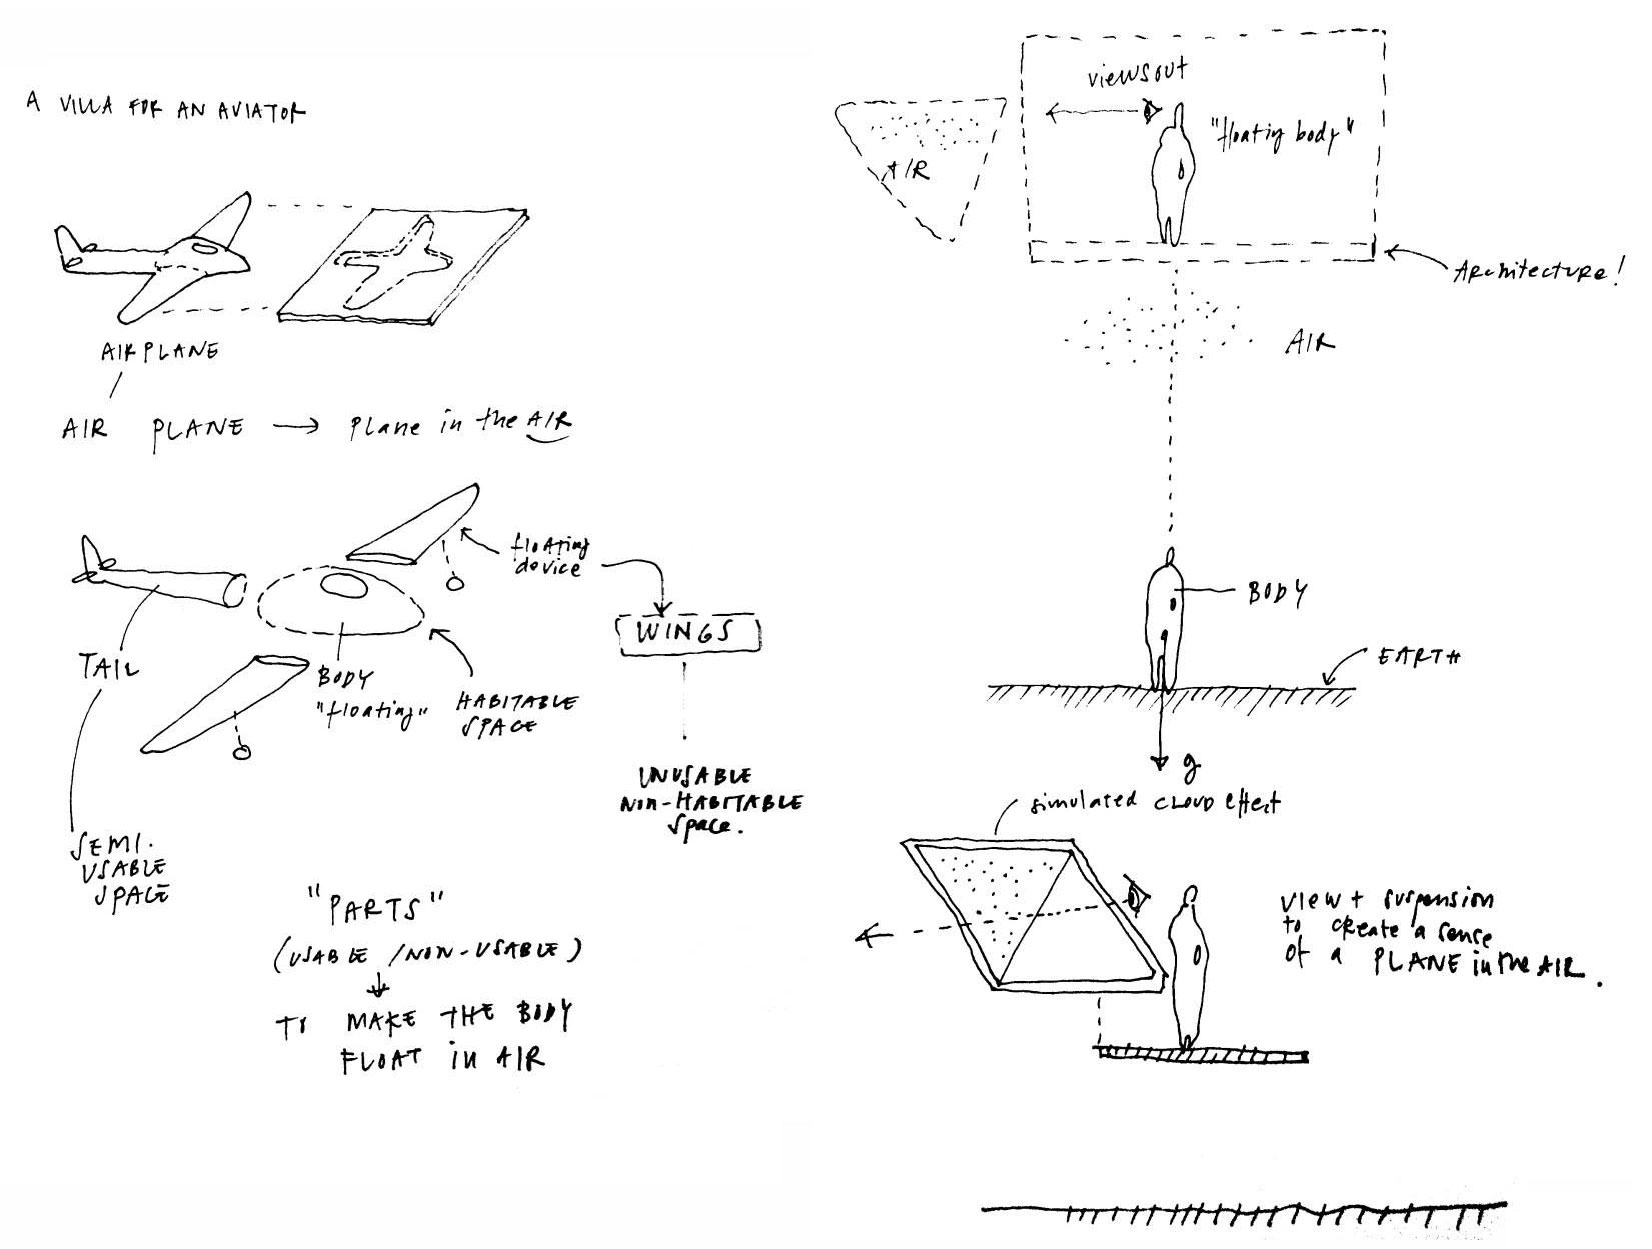 A VILLA FOR AN AVIATOR
AIRPLANE
AIR PLANE → PLane in the AIR
floating
device
WINGS
TAIL
BODY
"floating"
HABITABLE
SPACE
UNUSABLE
NON-HABITABLE
Space.
SEMI.
USABLE
SPACE
"PARTS"
(USABLE / NON-USABLE)
TO MAKE THE BODY
FLOAT in AIR
views out
"floating body"
AIR
Architecture!
AIR
BODY
EARTH
g
simulated CLOUD effect
VIEW + suspension
to create a sense
of a PLANE in the AIR.